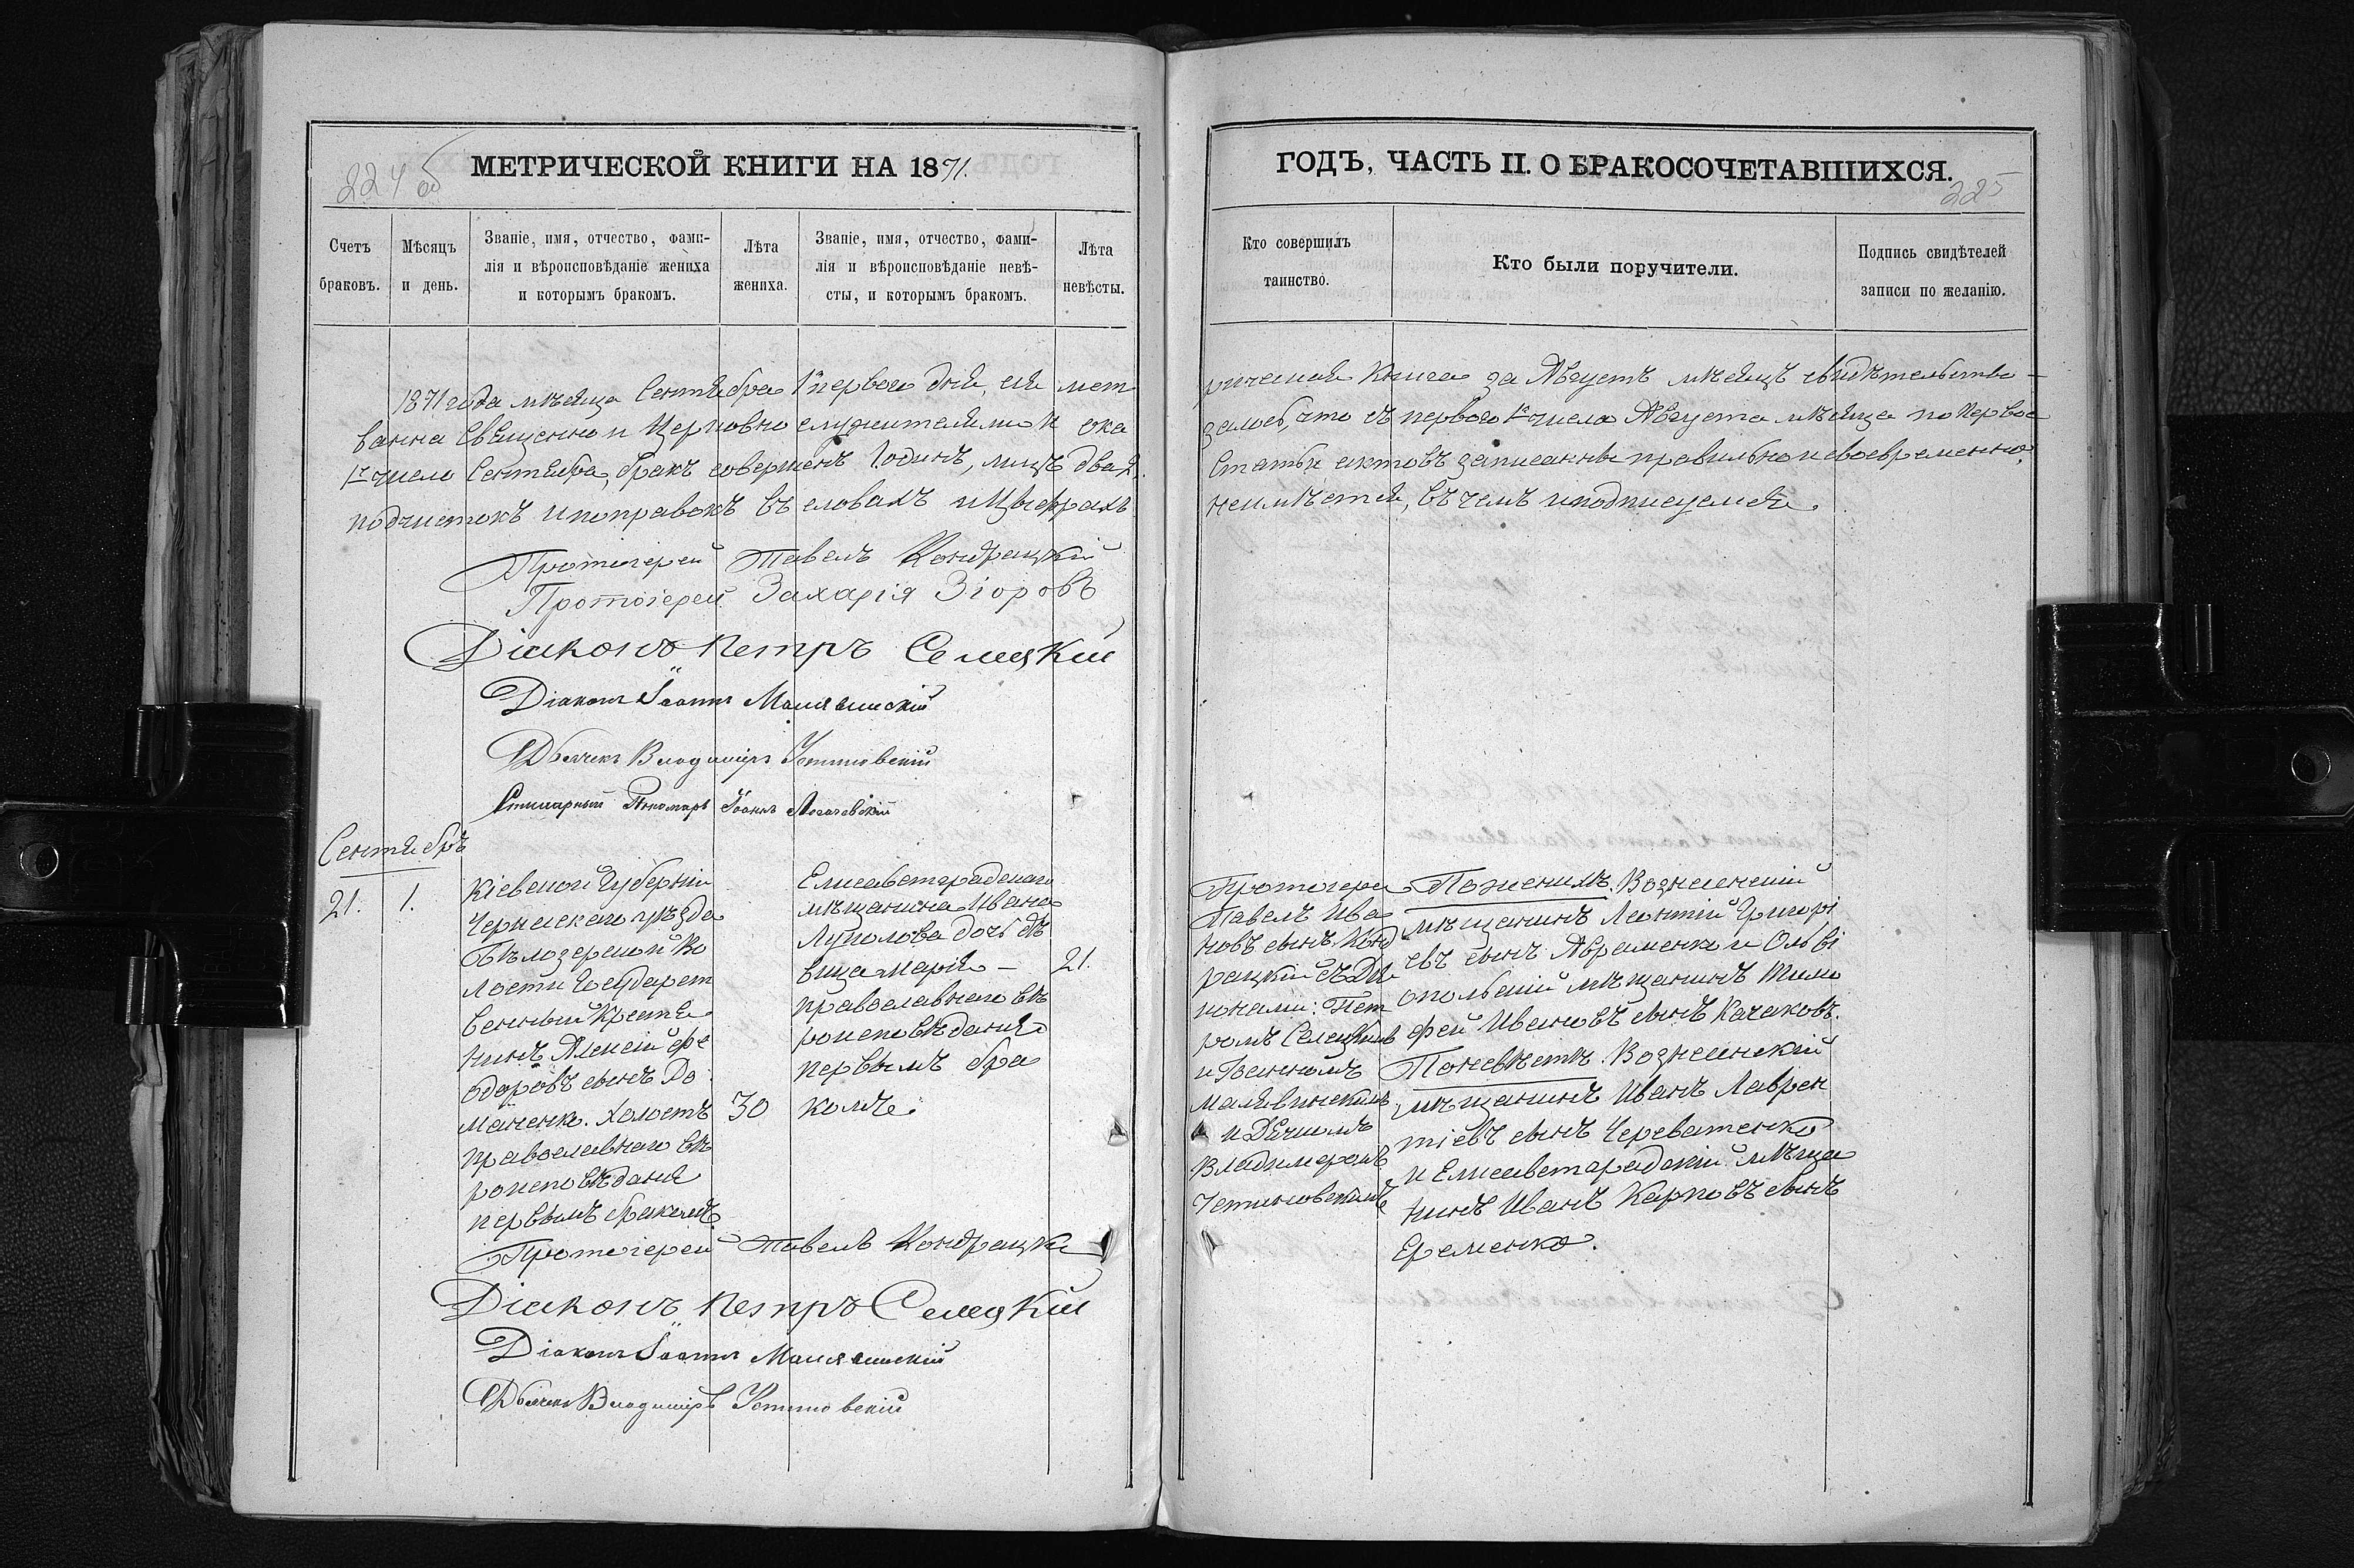 224 об
МЕТРИЧЕСКОЙ КНИГИ НА 1871.
Счетъ браковъ.
Мѣсяцъ и день.
Званіе, имя, отчество, фами-
лія и вѣроисповѣданіе жениха
и которымъ бракомъ.
Лѣта жениха.
Званіе, имя, отчество, фами-
лія и вѣроисповѣданіе невѣ-
сты, и которымъ бракомъ.
Лѣта невѣсты.
1871 года мѣсяца Сентября 1го перваго дня, сія мет
ванна Священно и Церковно служителями и ока
1е число Сентября, бракъ совершенъ 1 одинъ, лицъ два 2.
подчистокъ и поправокъ въ словахъ и Цыфрахъ
Протоіерей Павелъ Кондрацкій
Протоіерей Захарія Зіоровъ
Діаконъ Петръ Селецкій
Діаконъ Іоаннъ Малявинскій
Дьячекъ Владиміръ Устиновскій
Пономарь Іоаннъ
Сентябрь
21.
1.
Кіевской Губерніи
Черкаскаго уѣзда
Бѣлозерской Во
лости Государст
венный Крестья
нинъ Алексій Фе
одоровъ сынъ До
маненко. Холостъ
православнаго вѣ
роисповѣданія
первымъ бракомъ
30
Елисаветградскаго
мѣщанина Ивана
Луполова дочь дѣ
вица Марія –
православнаго вѣ
роисповѣданія
первымъ бра
комъ.
21.
Протоіерей Павелъ Кондрацкій
Діаконъ Петръ Селецкій
Діаконъ Іоаннъ Малявинскій
Дьячекъ Владиміръ Устиновскій
ГОДЪ, ЧАСТЬ II. О БРАКОСОЧЕТАВШИХСЯ.
225
Кто совершилъ
таинство.
Кто были поручители.
Подпись свидѣтелей
записи по желанію.
рическая Книга за Августъ мѣсяцъ свидѣтельство–
залось, что съ перваго 1го числа Августа мѣсяца по Первое
Статьи актовъ записанны правильно и своевременно,
неимѣется, въ чемъ и подписуемся.
Протоіерей
Павелъ Ива
новъ сынъ Конд
рацкій съ Діа
конами: Пет
ромъ Селецкимъ
и Іоанномъ
Малявинскимъ
и Дячкомъ
Владимеромъ
Устиновскимъ
По женихѣ. Вознесенскій
мѣщанинъ Леонтій Григорі
евъ сынъ Авраменко и Ольві
опольскій мѣщанинъ Тимо
фей Ивановъ сынъ Качаковъ.
По невѣстѣ. Вознесенскій
мѣщанинъ Иванъ Лаврен
тіевъ сынъ Череватенко
и Елисаветградскій мѣща
нинъ Иванъ Карповъ сынъ
Еременко.